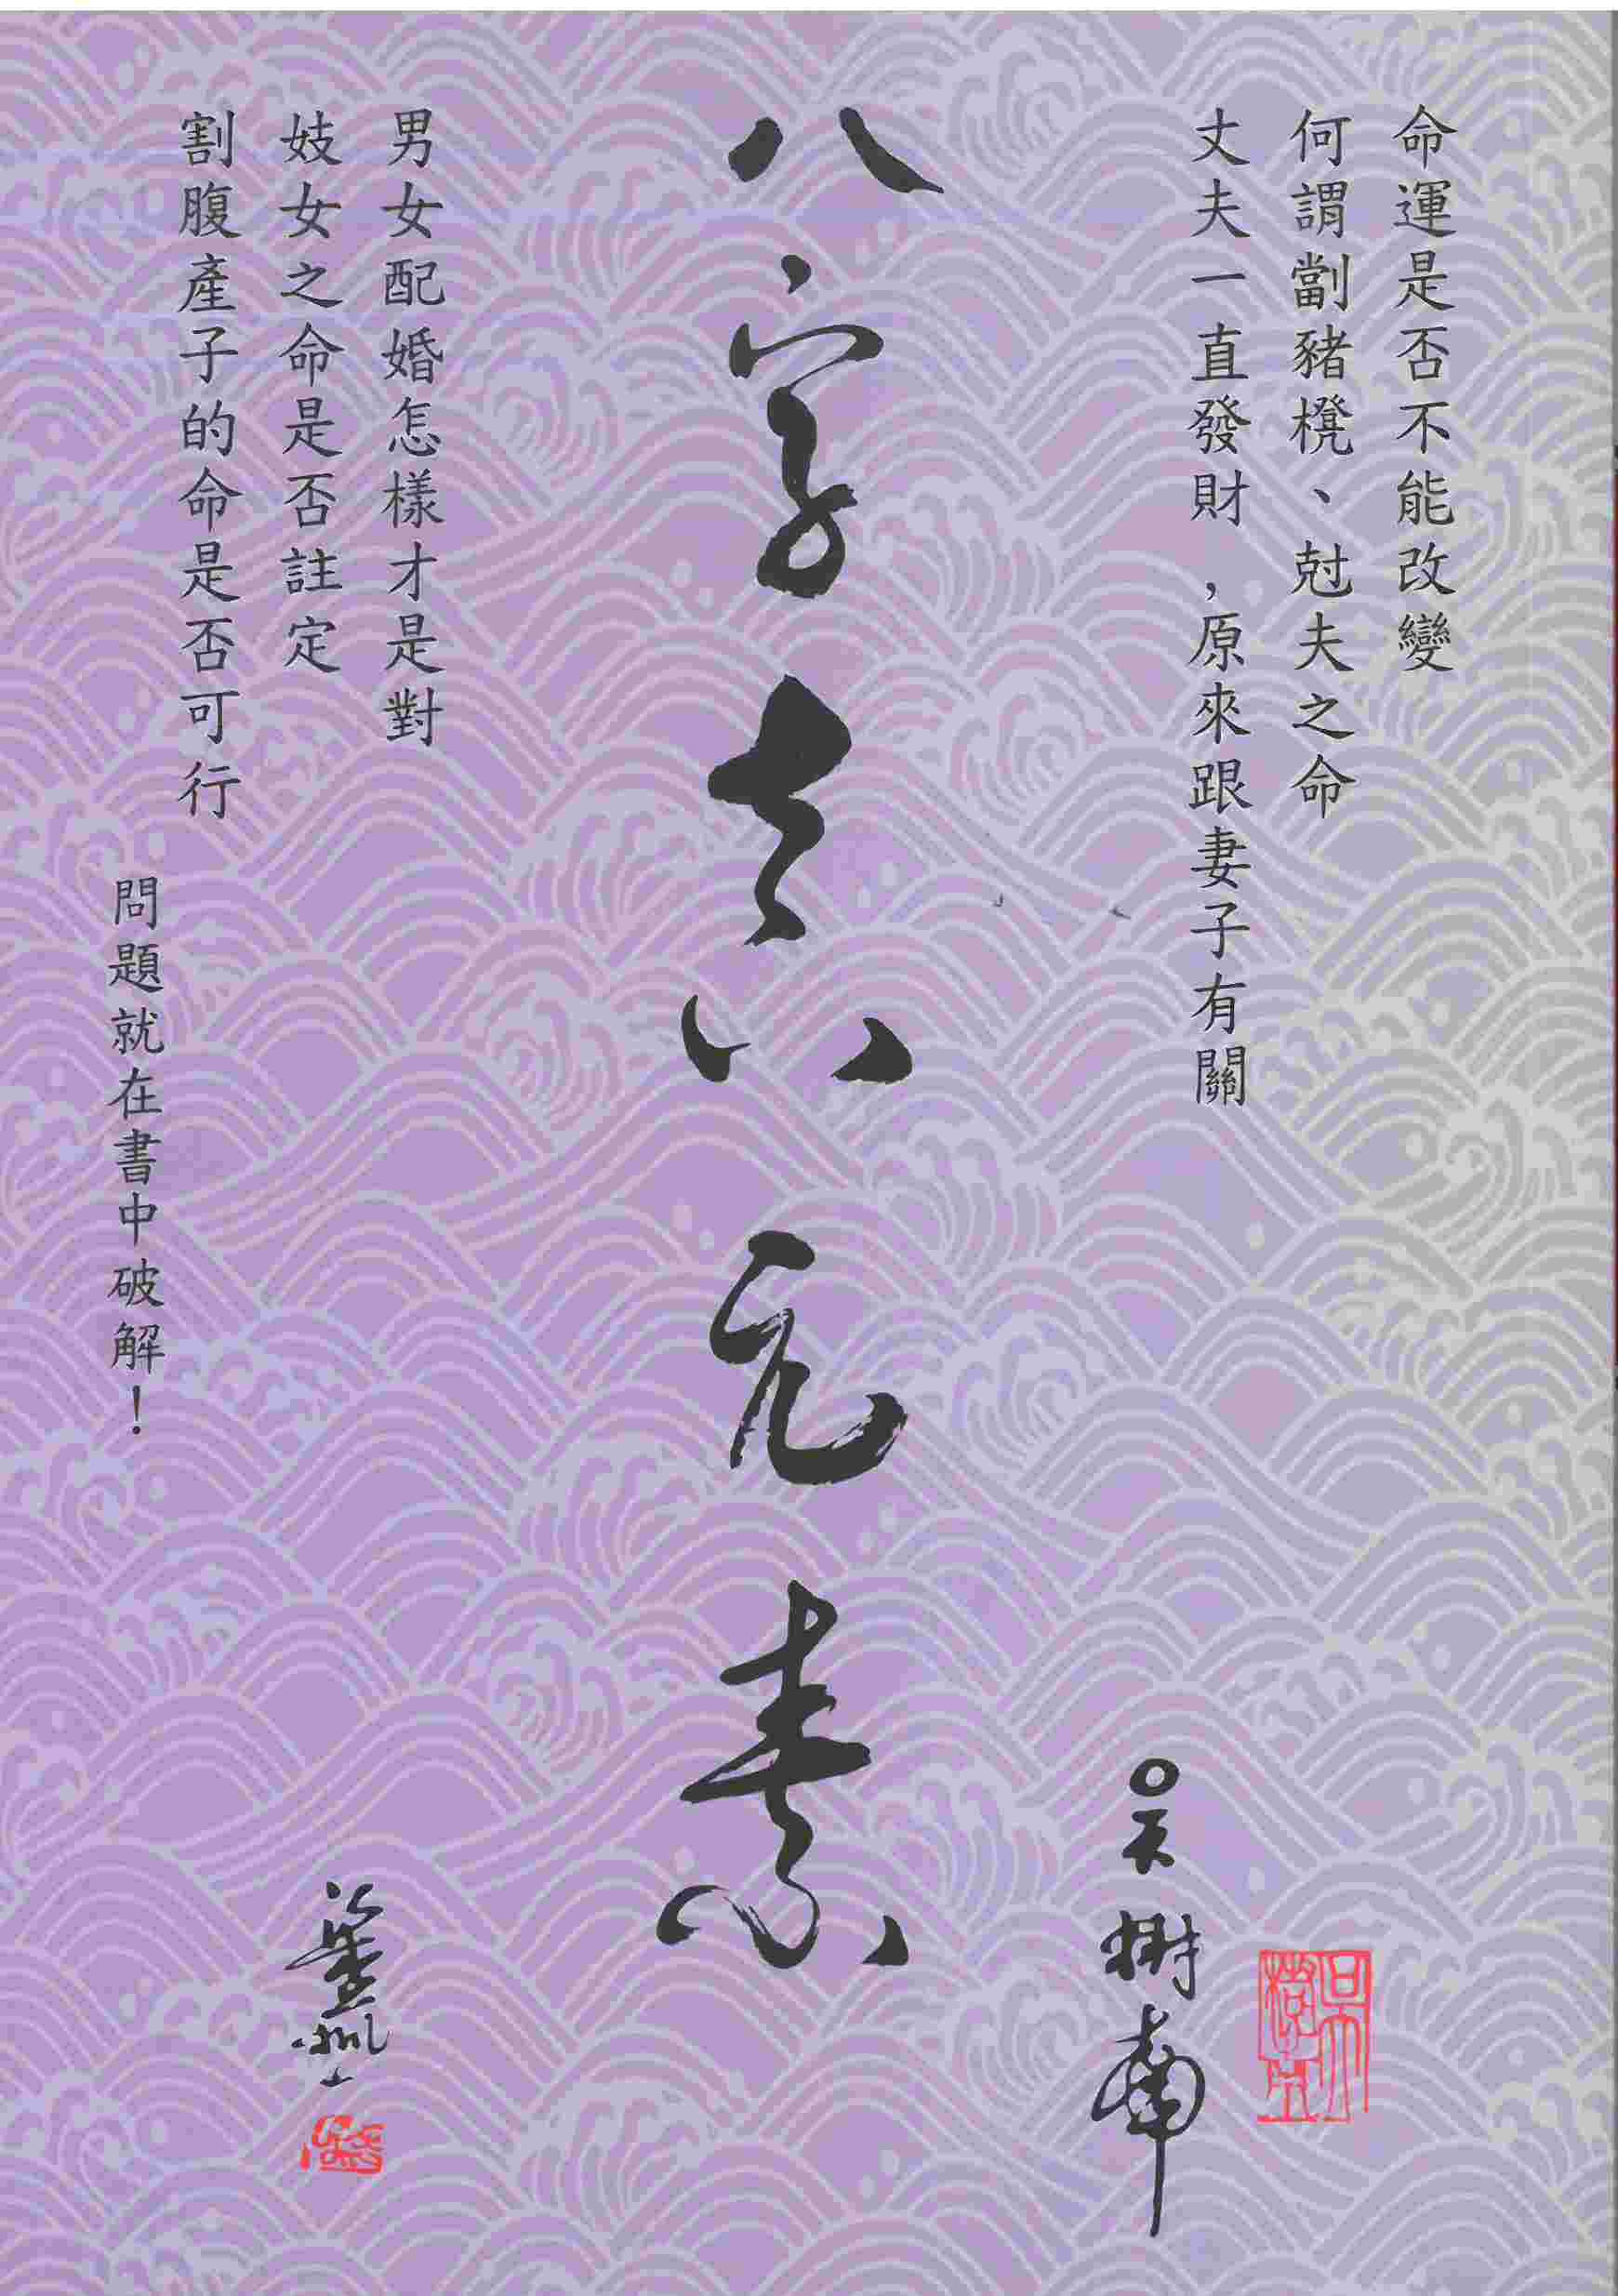 命運是否不能改變
何謂劏豬櫈、尅夫之命
丈夫一直發財，原來跟妻子有關
八字真元素
吳樹南
男女配婚怎樣才是對
妓女之命是否註定
割腹產子的命是否可行
問題就在書中破解！